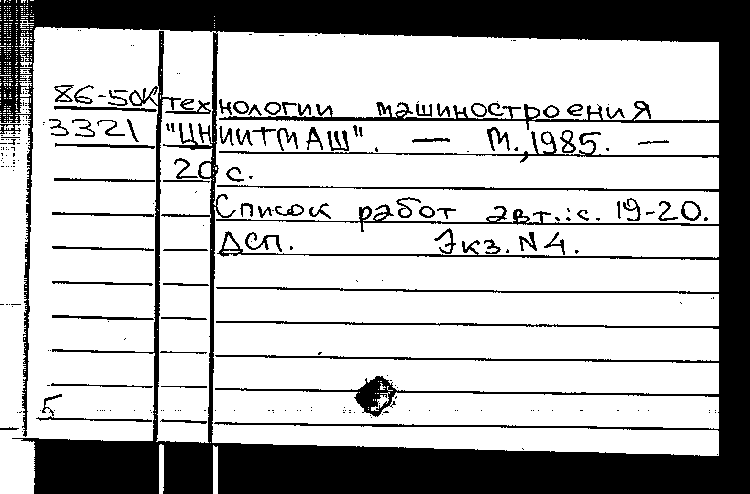 86-5дк технологии машиностроения
3321 "ЦНИИТМАШ". — М., 1985. —
20 с.
Список работ авт.: с. 19-20.
ДСП. Экз. N4.
5